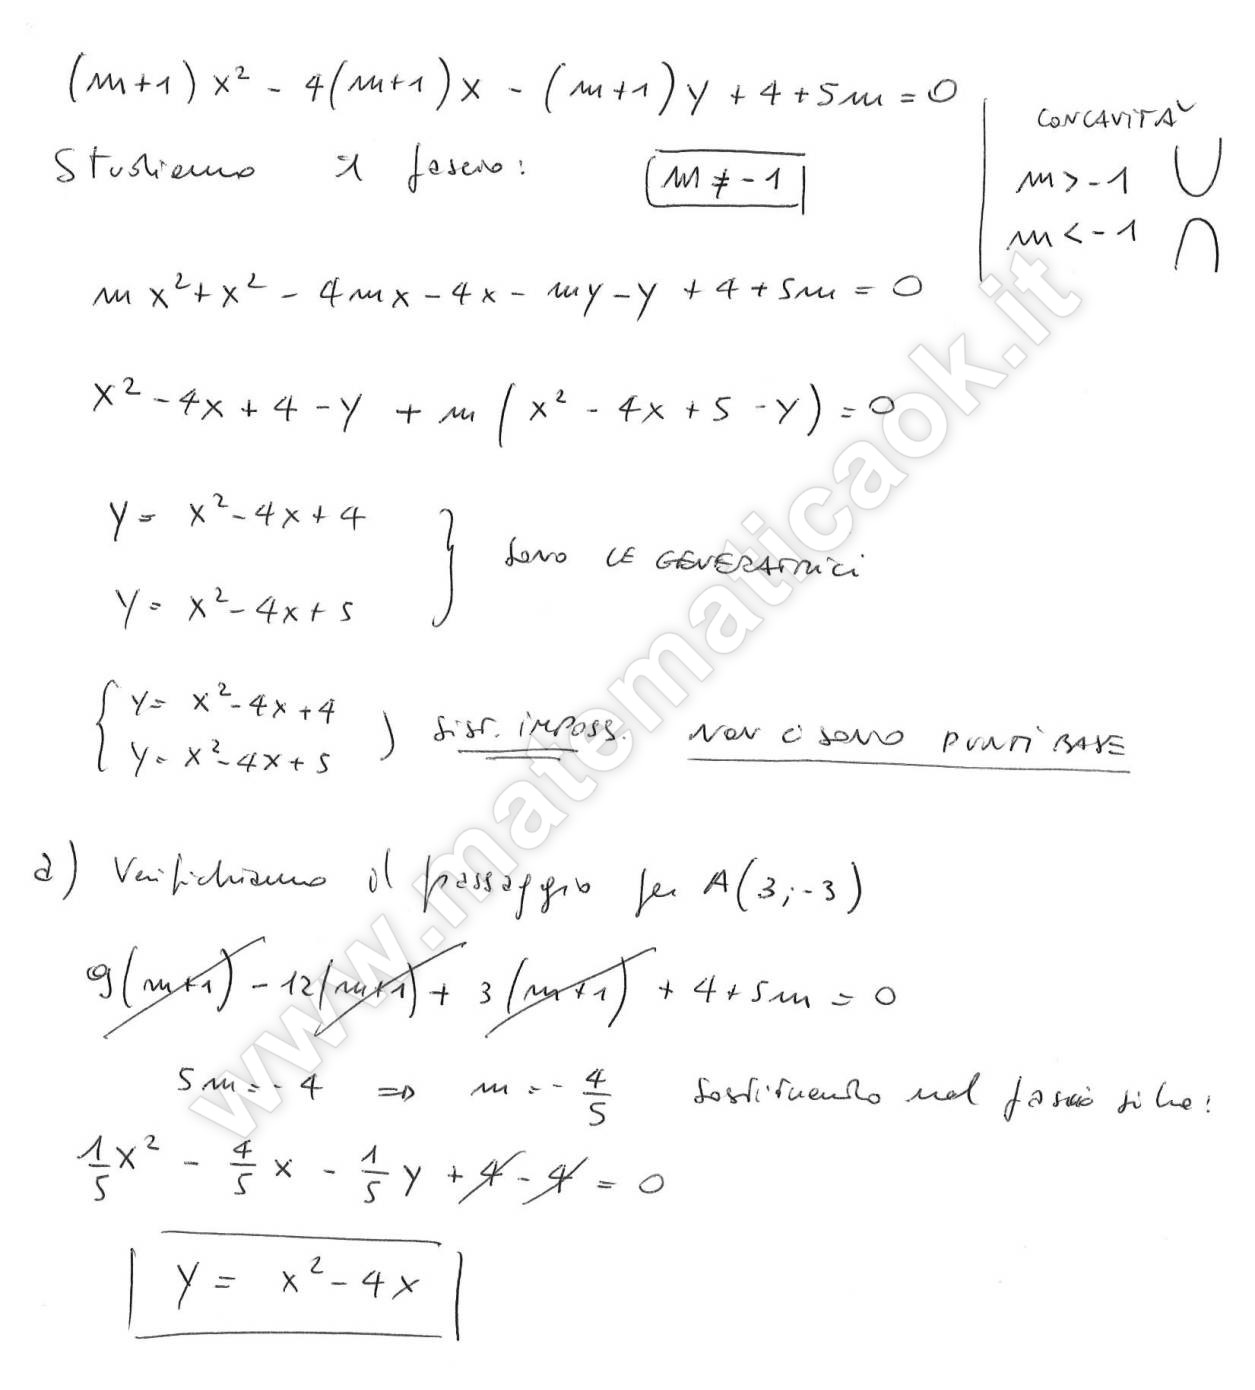 (m+1)x² - 4(m+1)x - (m+1)y + 4 + 5m = 0
CONCAVITA'
Studiamo il fascio: m ≠ -1
m > -1 ∪
m < -1 ∩
mx² + x² - 4mx - 4x - my - y + 4 + 5m = 0
x² - 4x + 4 - y + m(x² - 4x + 5 - y) = 0
y = x² - 4x + 4
} sono LE GENERATRICI
y = x² - 4x + 5
{ y = x² - 4x + 4
y = x² - 4x + 5 ) SIST. IMPOSS. NON CI SONO PUNTI BASE
a) Verifichiamo il passaggio per A(3;-3)
9(m+1) - 12(m+1) + 3(m+1) + 4 + 5m = 0
5m = -4 ⇒ m = -4/5 Sostituendo nel fascio si ha:
1/5x² - 4/5x - 1/5y + 4 - 4 = 0
y = x² - 4x
www.matematicaok.it